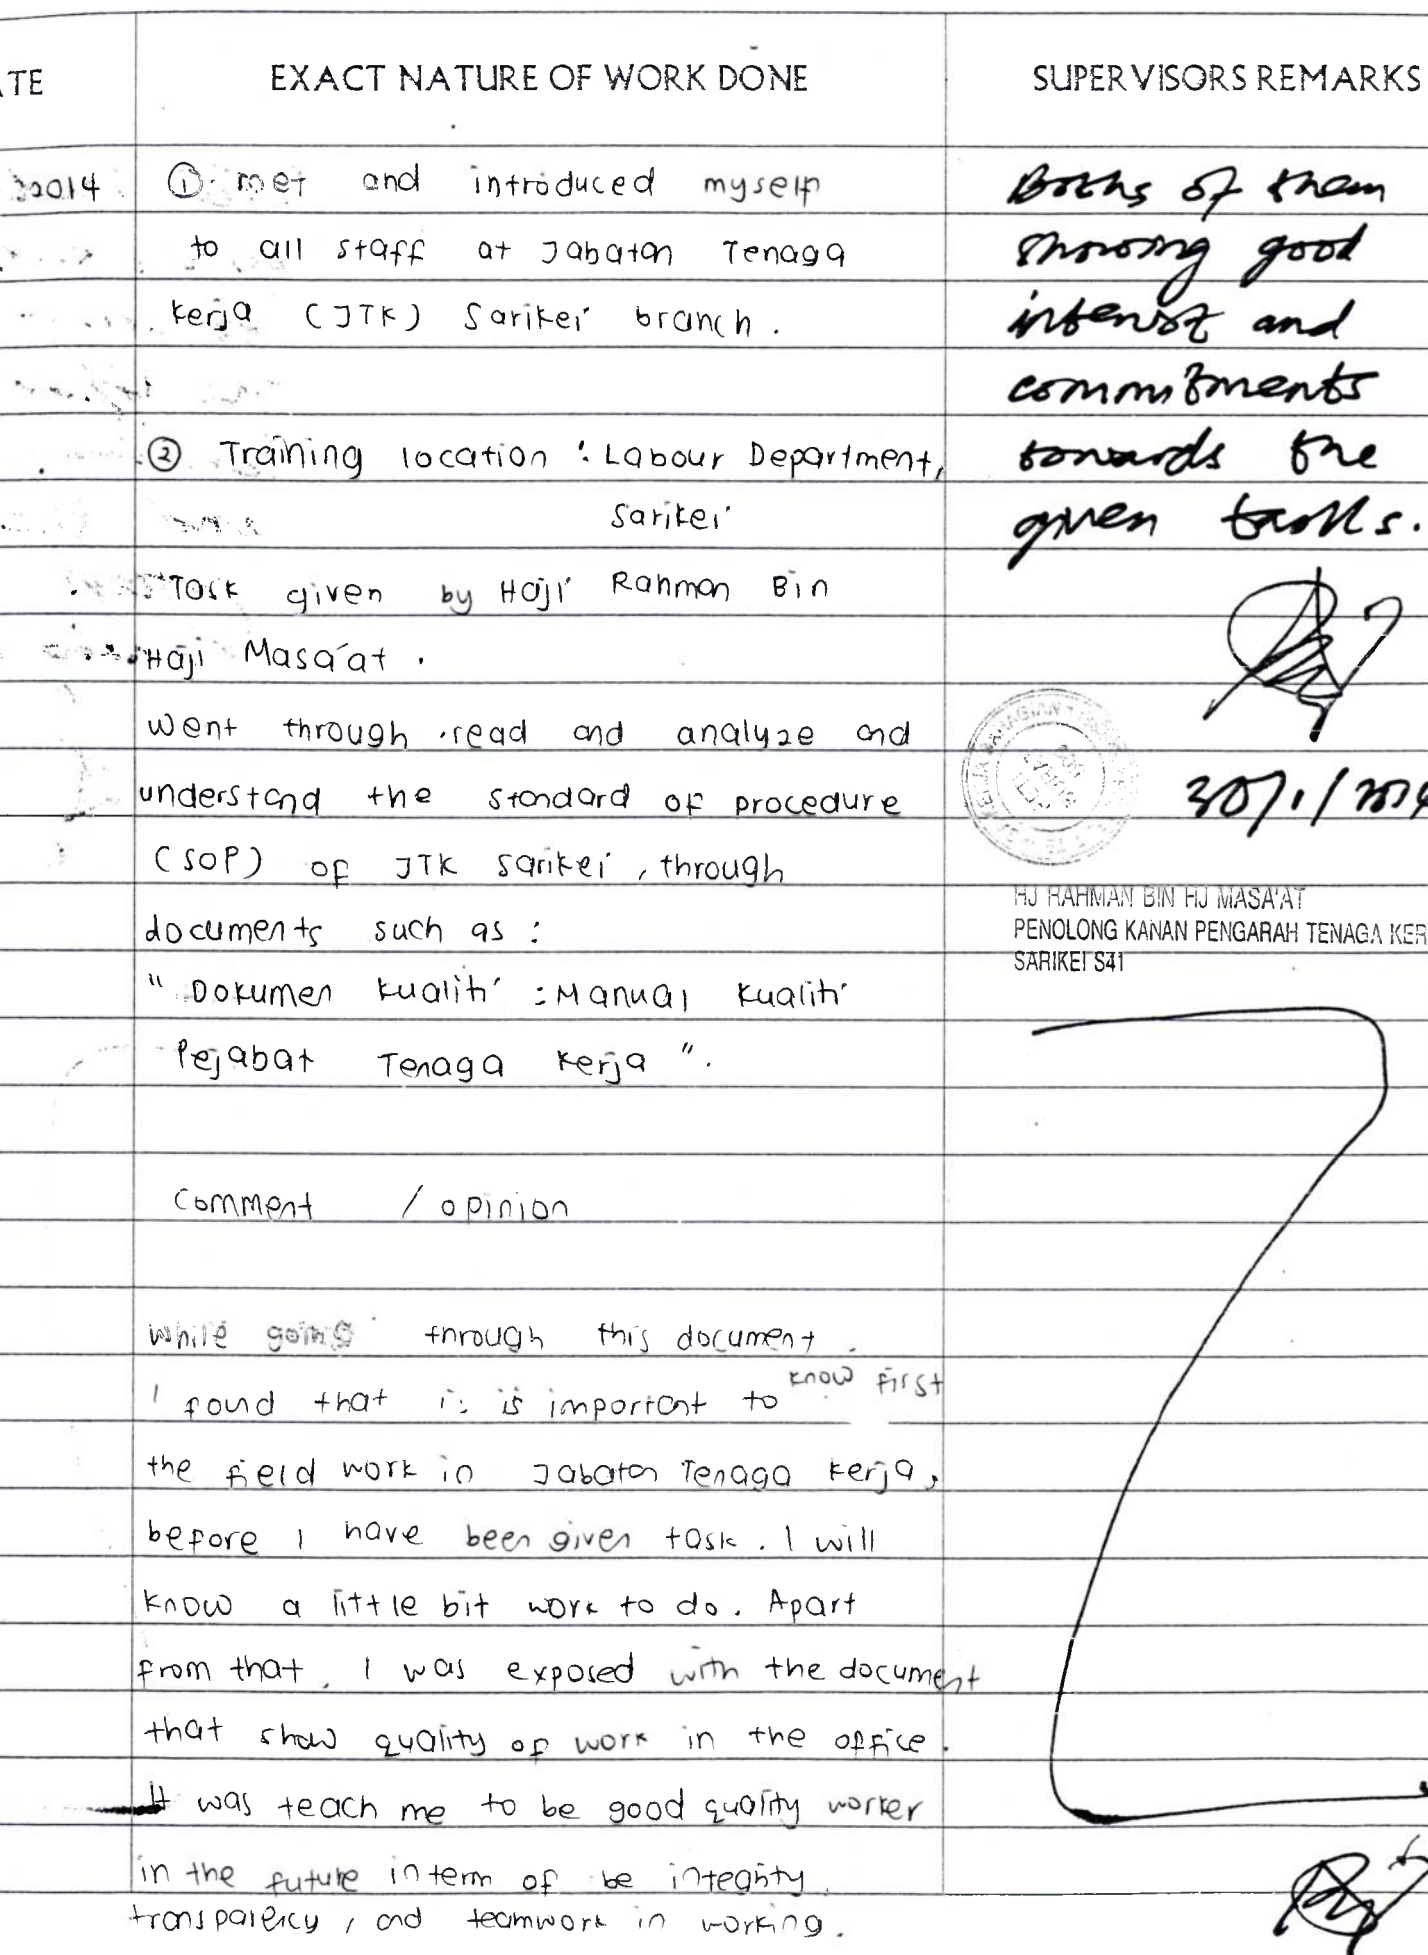 TE
EXACT NATURE OF WORK DONE
SUPERVISORS REMARKS
2014
① met and introduced myself
to all staff at Jabatan Tenaga
Kerja (JTK) Sarikei branch.
② Training location : Labour Department,
Sarikei
Task given by Haji Rahman Bin
Haji Masa'at.
Went through read and analyze and
understand the standard of procedure
(SOP) of JTK Sarikei, through
documents such as :
" Dokumen Kualiti : Manual Kualiti
Pejabat Tenaga Kerja ".
Comment / opinion
While going through this document.
I found that it is important to know first
the field work in Jabatan Tenaga Kerja,
before I have been given task. I will
know a little bit work to do. Apart
from that, I was exposed with the document
that show quality of work in the office.
It was teach me to be good quality worker
in the future in term of be integrity,
transparency, and teamwork in working.
Boths of them
showing good
interest and
commitments
towards the
given tasks.
30/1/2014
HJ RAHMAN BIN HJ MASA'AT
PENOLONG KANAN PENGARAH TENAGA KER
SARIKEI S41